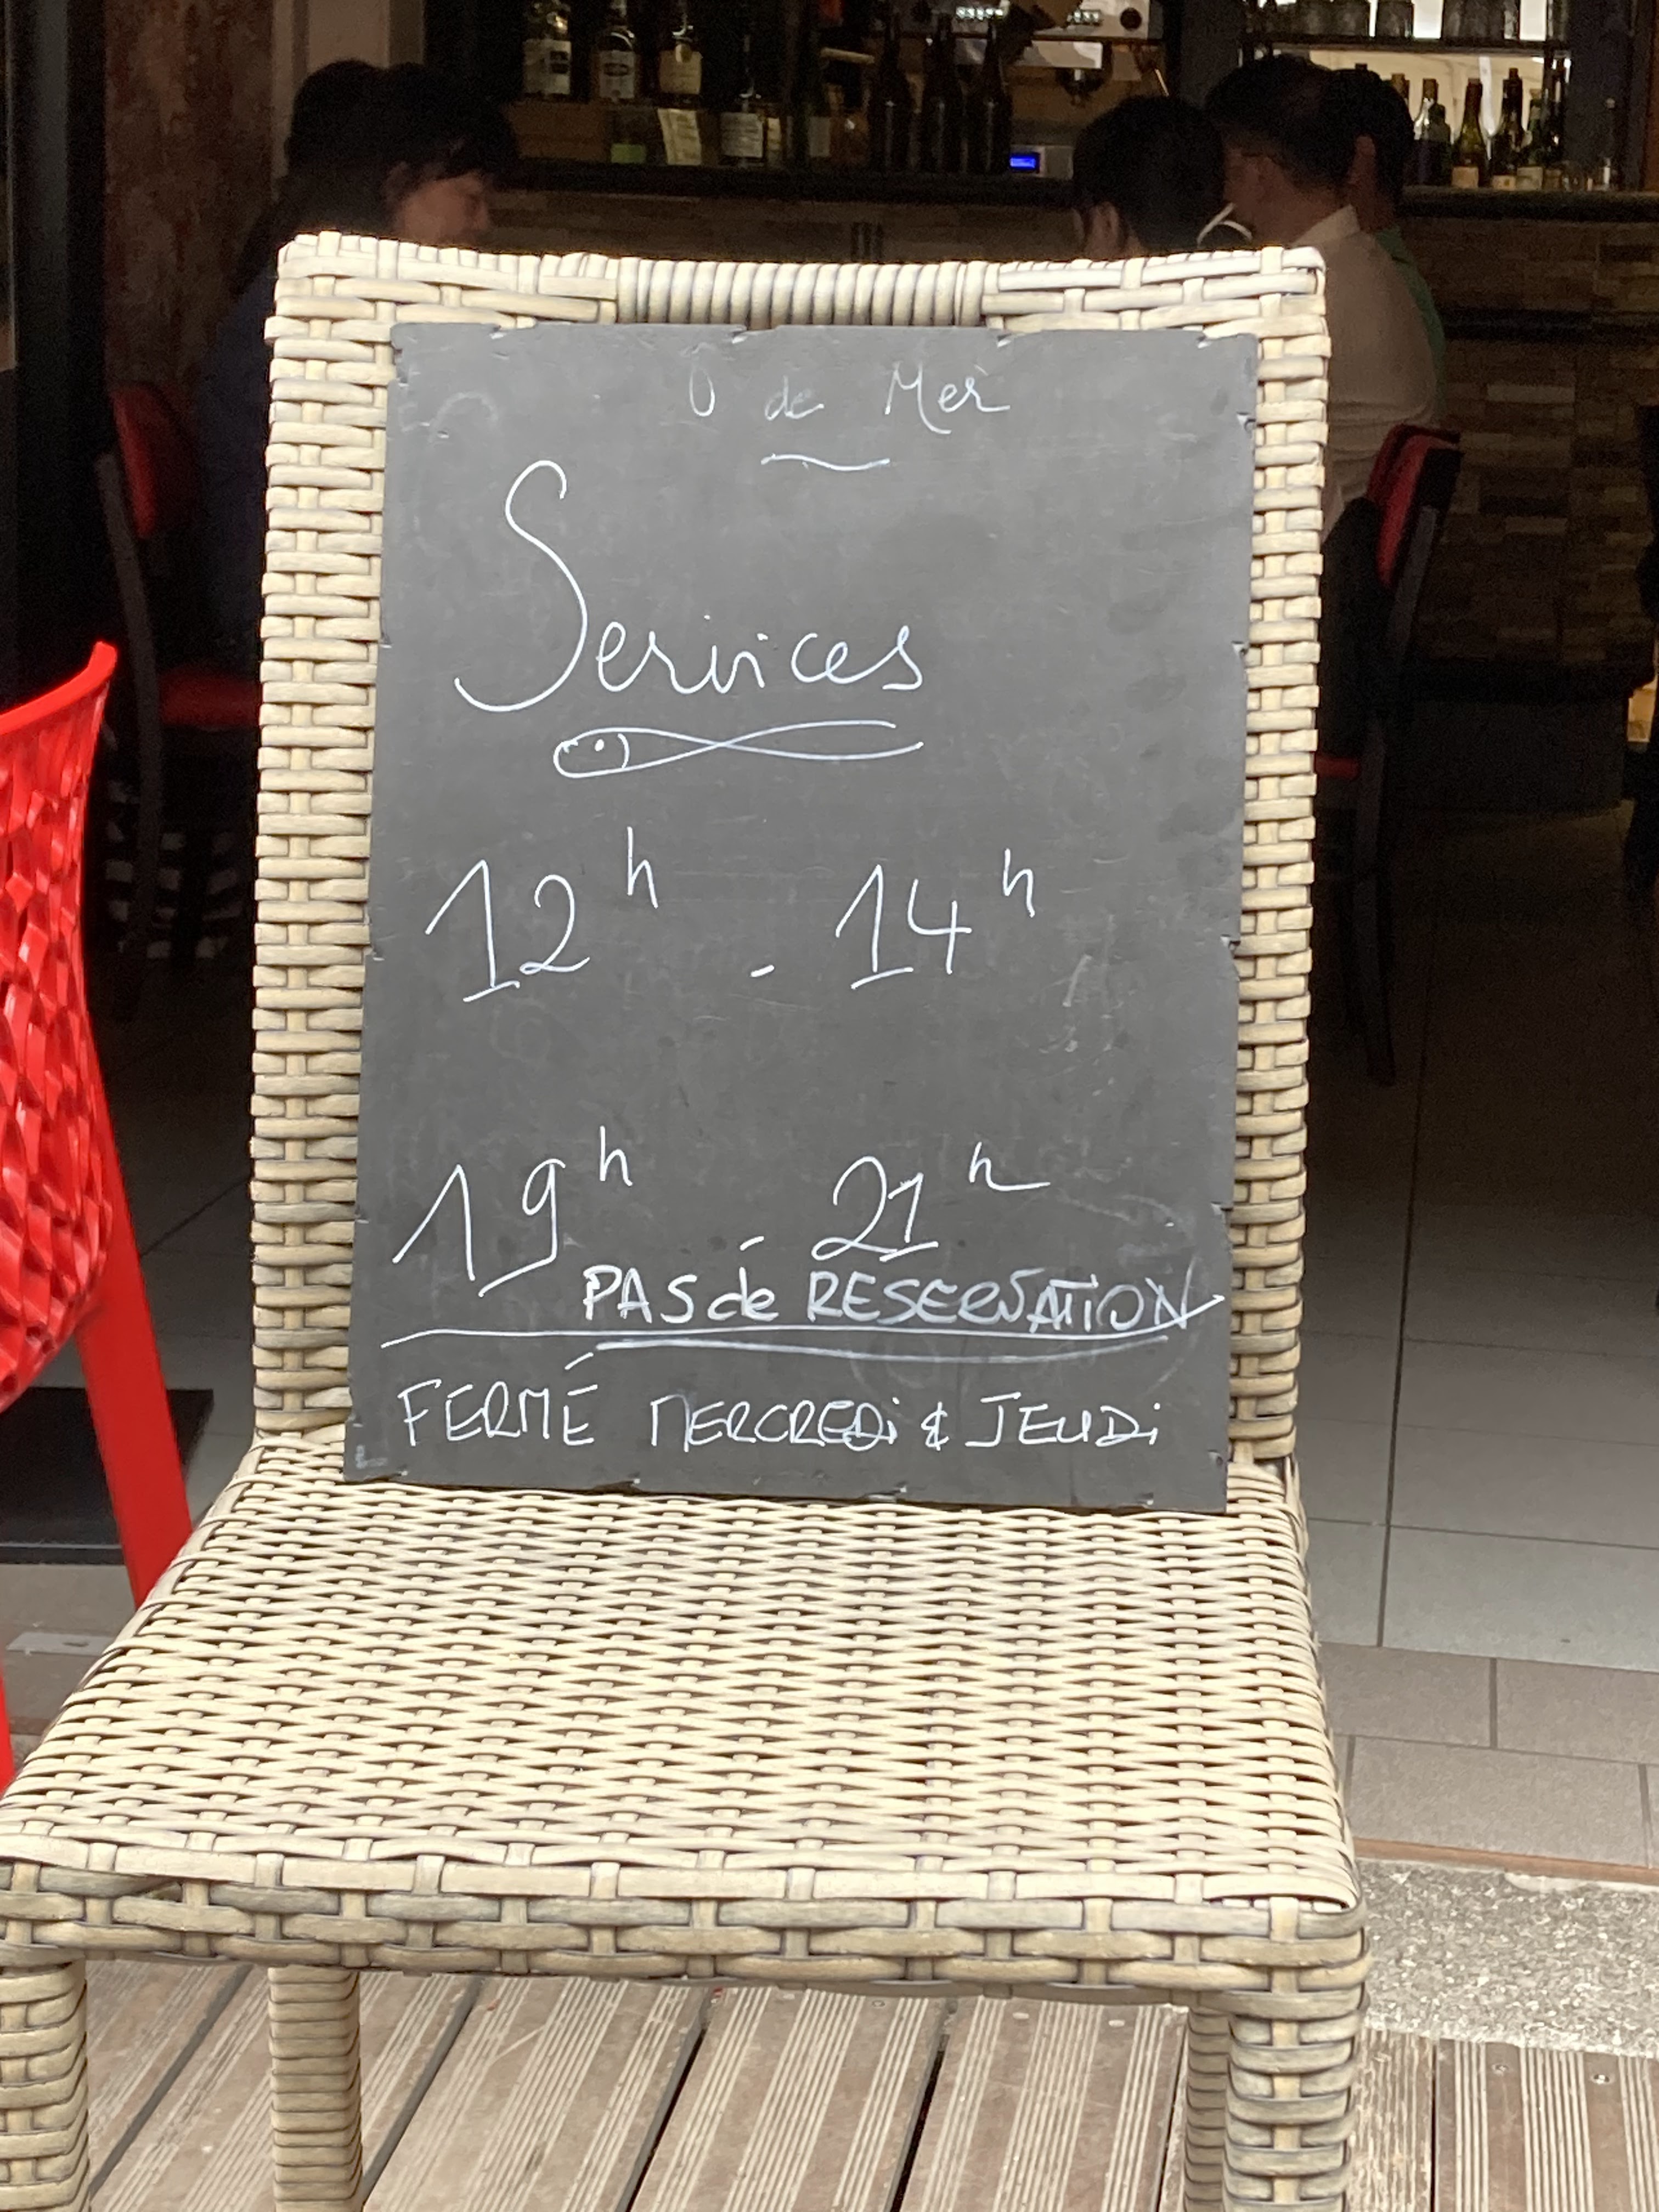 Ô de Mer
Services
12h - 14h
19h - 21h
PAS de RESERVATION
FERMÉ MERCREDi & JEUDi